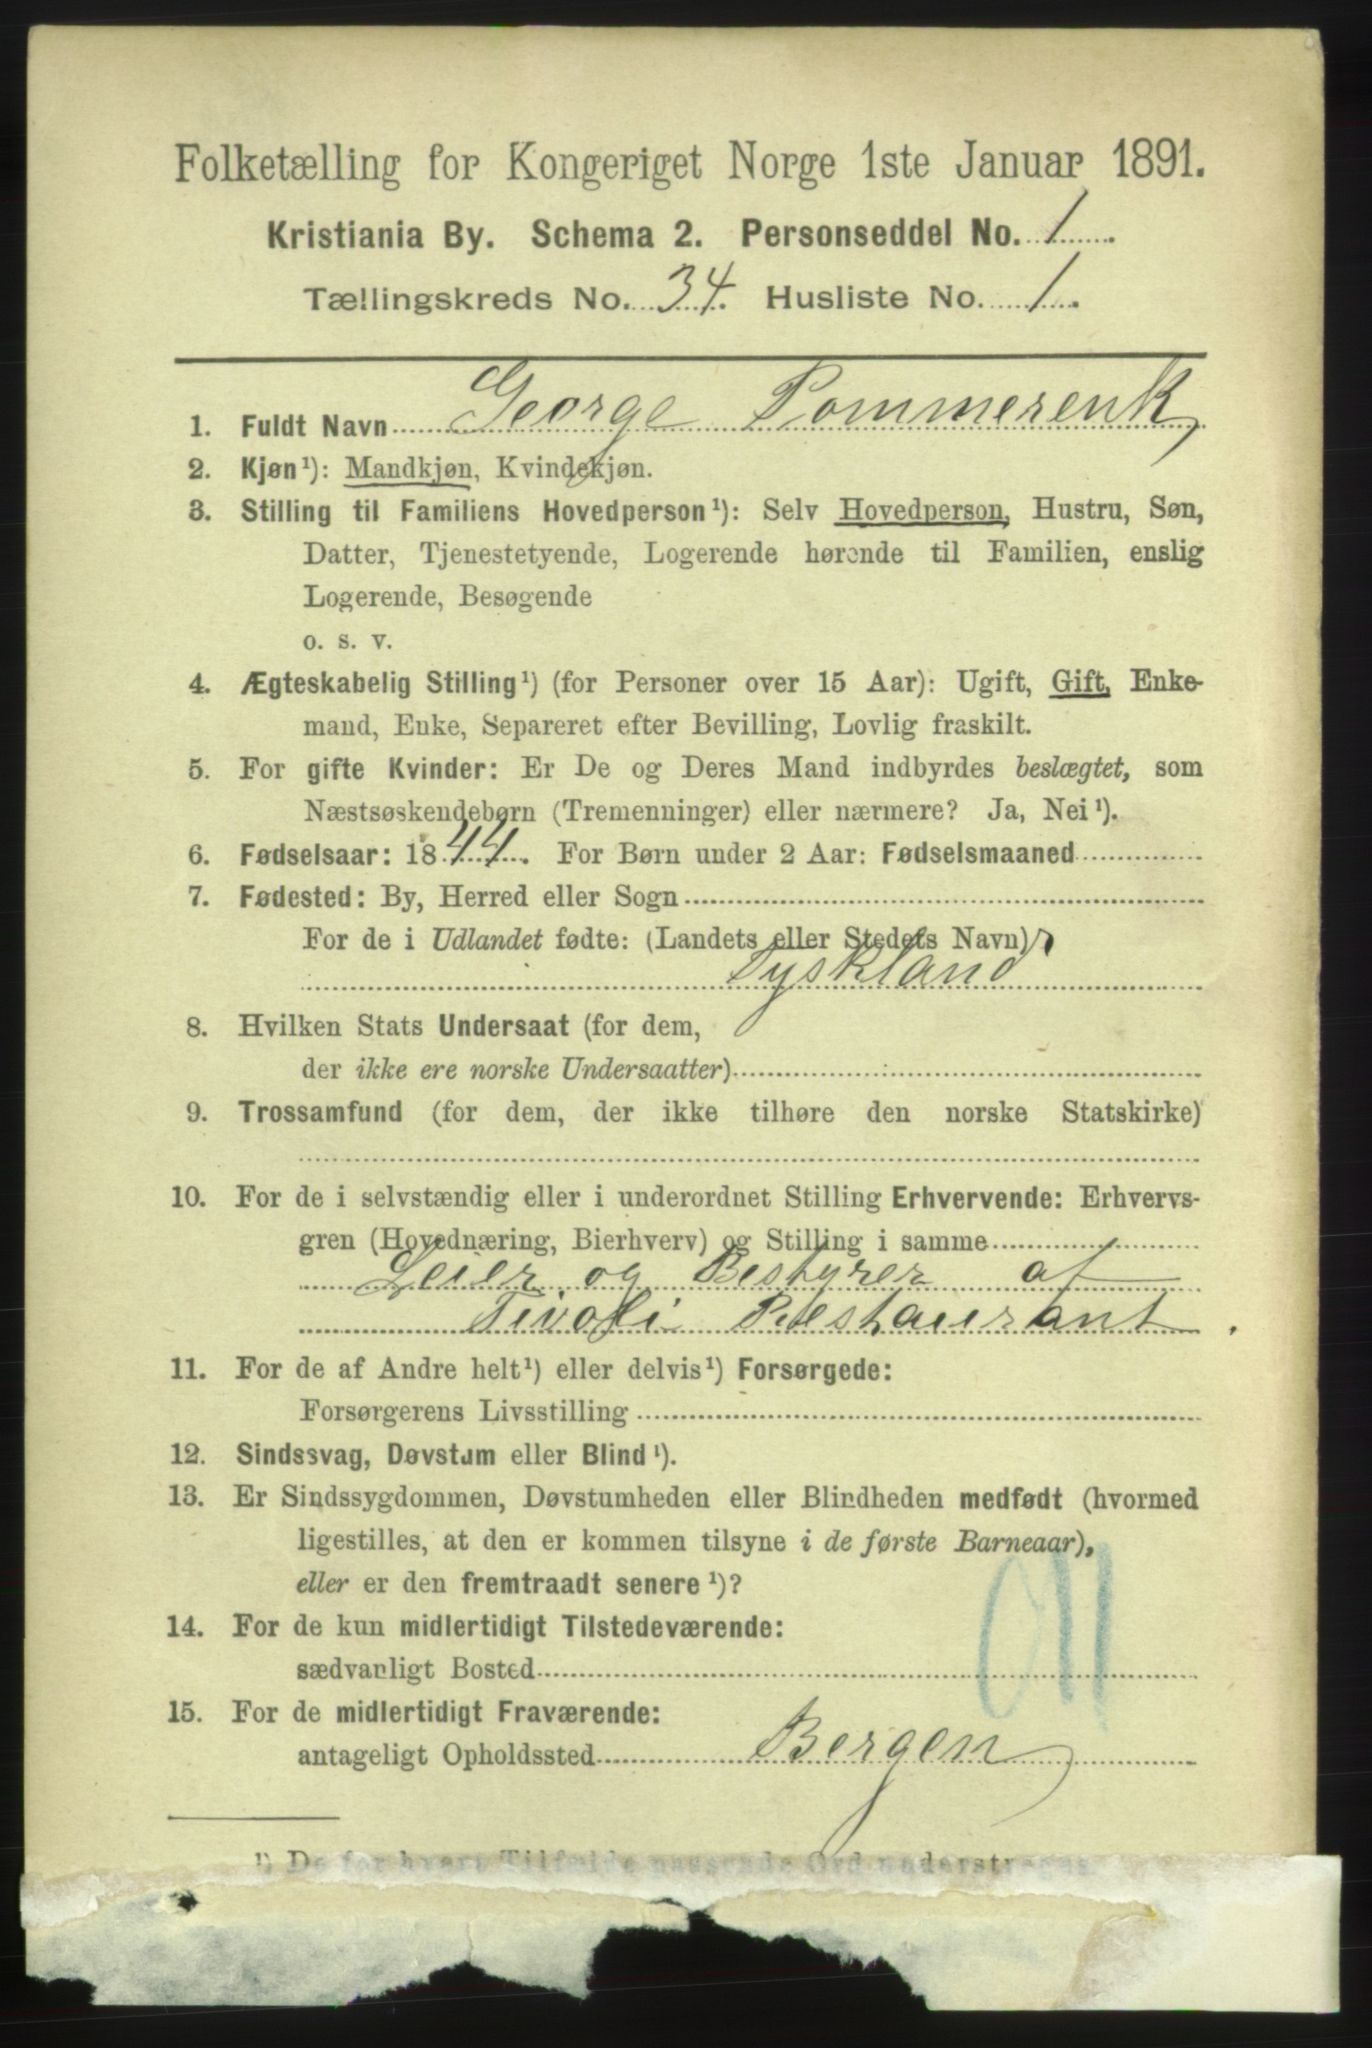 Folketælling for Kongeriget Norge 1ste Januar 1891.
Kristiania By. Schema 2. Personseddel No. 1.
Tællingskreds No. 34. Husliste No. 1.
1. Fuldt Navn George Pommerenk
2. Kjøn¹): Mandkjøn, Kvindekjøn.
3. Stilling til Familiens Hovedperson¹): Selv Hovedperson, Hustru, Søn,
Datter, Tjenestetyende, Logerende hørende til Familien, enslig
Logerende, Besøgende
o. s. v.
4. Ægteskabelig Stilling¹) (for Personer over 15 Aar): Ugift, Gift, Enke-
mand, Enke, Separeret efter Bevilling, Lovlig fraskilt.
5. For gifte Kvinder: Er De og Deres Mand indbyrdes beslægtet, som
Næstsøskendebørn (Tremenninger) eller nærmere? Ja, Nei¹).
6. Fødselsaar: 1844. For Børn under 2 Aar: Fødselsmaaned
7. Fødested: By, Herred eller Sogn
For de i Udlandet fødte: (Landets eller Stedets Navn)
Tyskland
8. Hvilken Stats Undersaat (for dem,
der ikke ere norske Undersaatter)
9. Trossamfund (for dem, der ikke tilhøre den norske Statskirke)
10. For de i selvstændig eller i underordnet Stilling Erhvervende: Erhvervs-
gren (Hovednæring, Bierhverv) og Stilling i samme
Leier og Bestyrer af
Tivoli Restaurant.
11. For de af Andre helt¹) eller delvis¹) Forsørgede:
Forsørgerens Livsstilling
12. Sindssvag, Døvstum eller Blind¹).
13. Er Sindssygdommen, Døvstumheden eller Blindheden medfødt (hvormed
ligestilles, at den er kommen tilsyne i de første Barneaar),
eller er den fremtraadt senere¹)?
14. For de kun midlertidigt Tilstedeværende:
sædvanligt Bosted
15. For de midlertidigt Fraværende:
antageligt Opholdssted Bergen
¹) De for hvert Tilfælde passende Ord understreges.